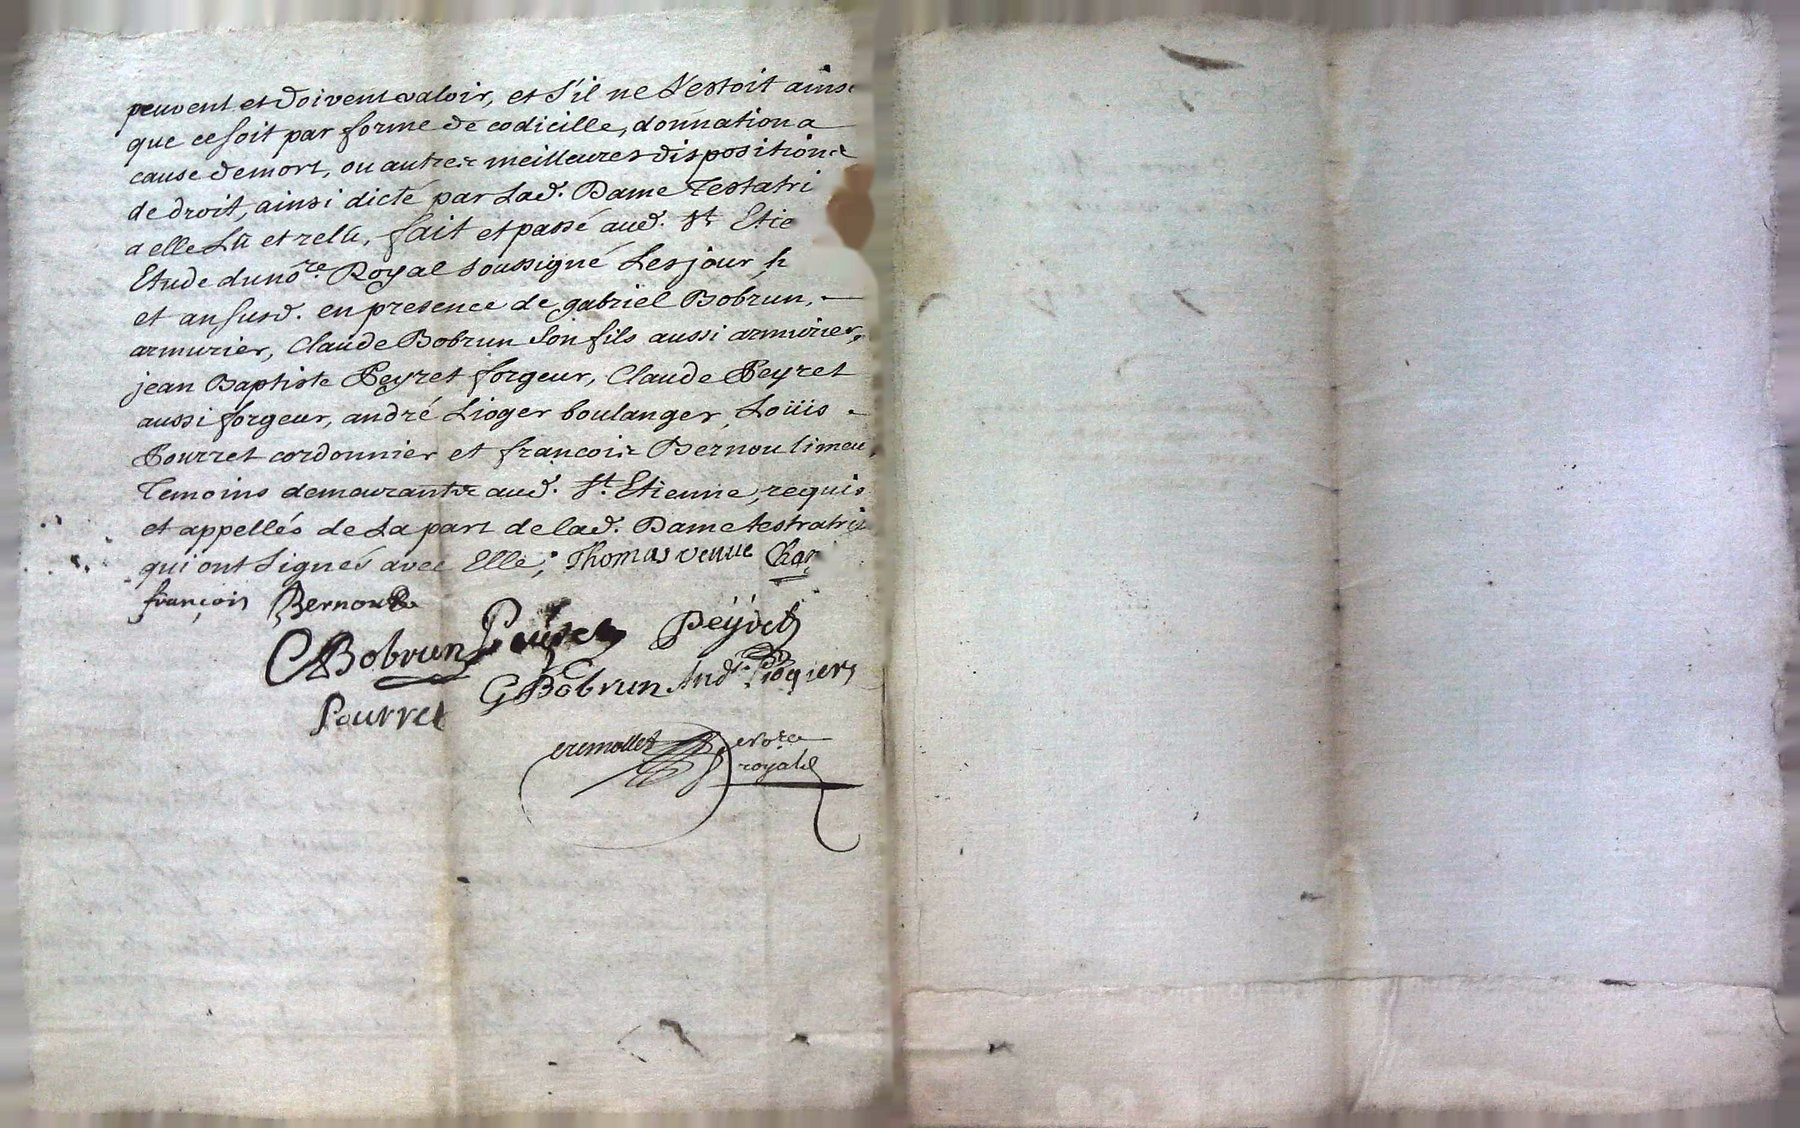 peuvent et doivent valoir, et s'il ne l'estoit ainsi
que ce soit par forme de codicille, donnation a
cause de mort, ou autres meilleures dispositions
de droit, ainsi dicté par lad. Dame Testatri
a elle Lû et relû, fait et passé aud. St Etie
Etude du nore. Royal soussigné Les jour h
et an susd. en presence de gabriel Bobrun,
armurier, Claude Bobrun son fils aussi armurier,
jean Baptiste Peyret forgeur, Claude Peyret
aussi forgeur, andré Lioger boulanger, Loüis
Pourret cordonnier et francois Bernou limeu
Temoins demeurants aud. St. Etienne, requis
et appellés de La part de lad. Dame testratrix
qui ont signés avec Elle; Thomas veuve Char
françois Bernou
CBobrun Peyret Peÿret
GBobrun And. Liogier
Pourret
cremollet
nore
royal